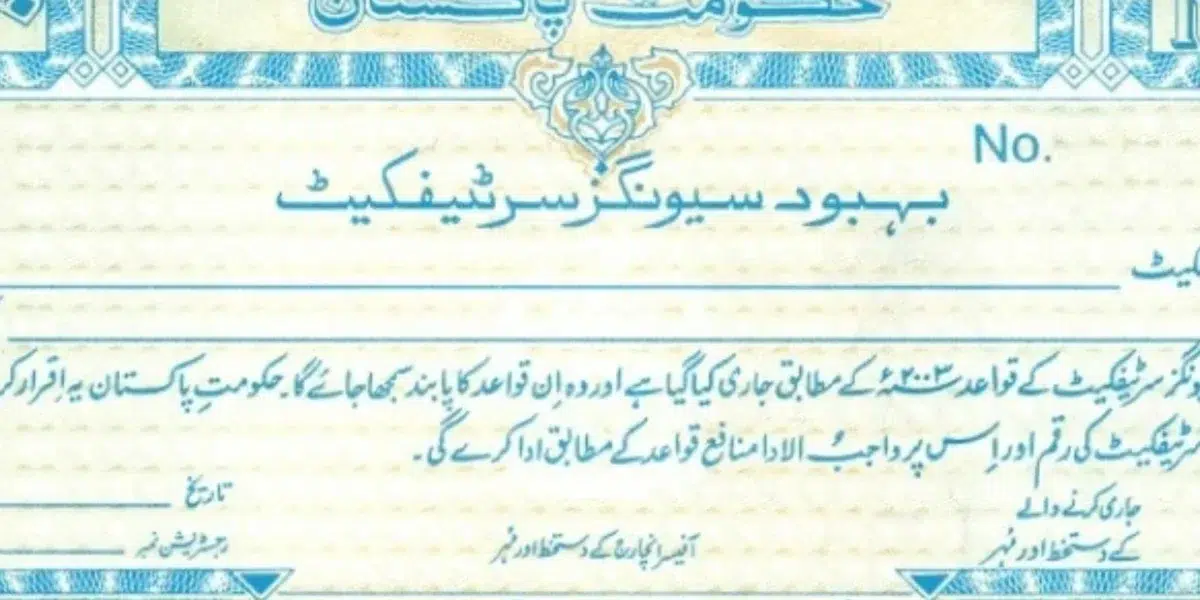 حکومت پاکستان
No.
بہبود سیونگز سرٹیفکیٹ
کیٹ
ونگز سرٹیفکیٹ کے قواعد ۲۰۰۳ء کے مطابق جاری کیا گیا ہے اور وہ اِن قواعد کا پابند سمجھا جائے گا۔ حکومتِ پاکستان یہ اقرار کر
رٹیفکیٹ کی رقم اور اِس پر واجبُ الادا منافع قواعد کے مطابق ادا کرے گی۔
جاری کرنے والے
تاریخ
کے دستخط اور نمبر
آفیسر انچارج کے دستخط اور نمبر
رجسٹریشن نمبر